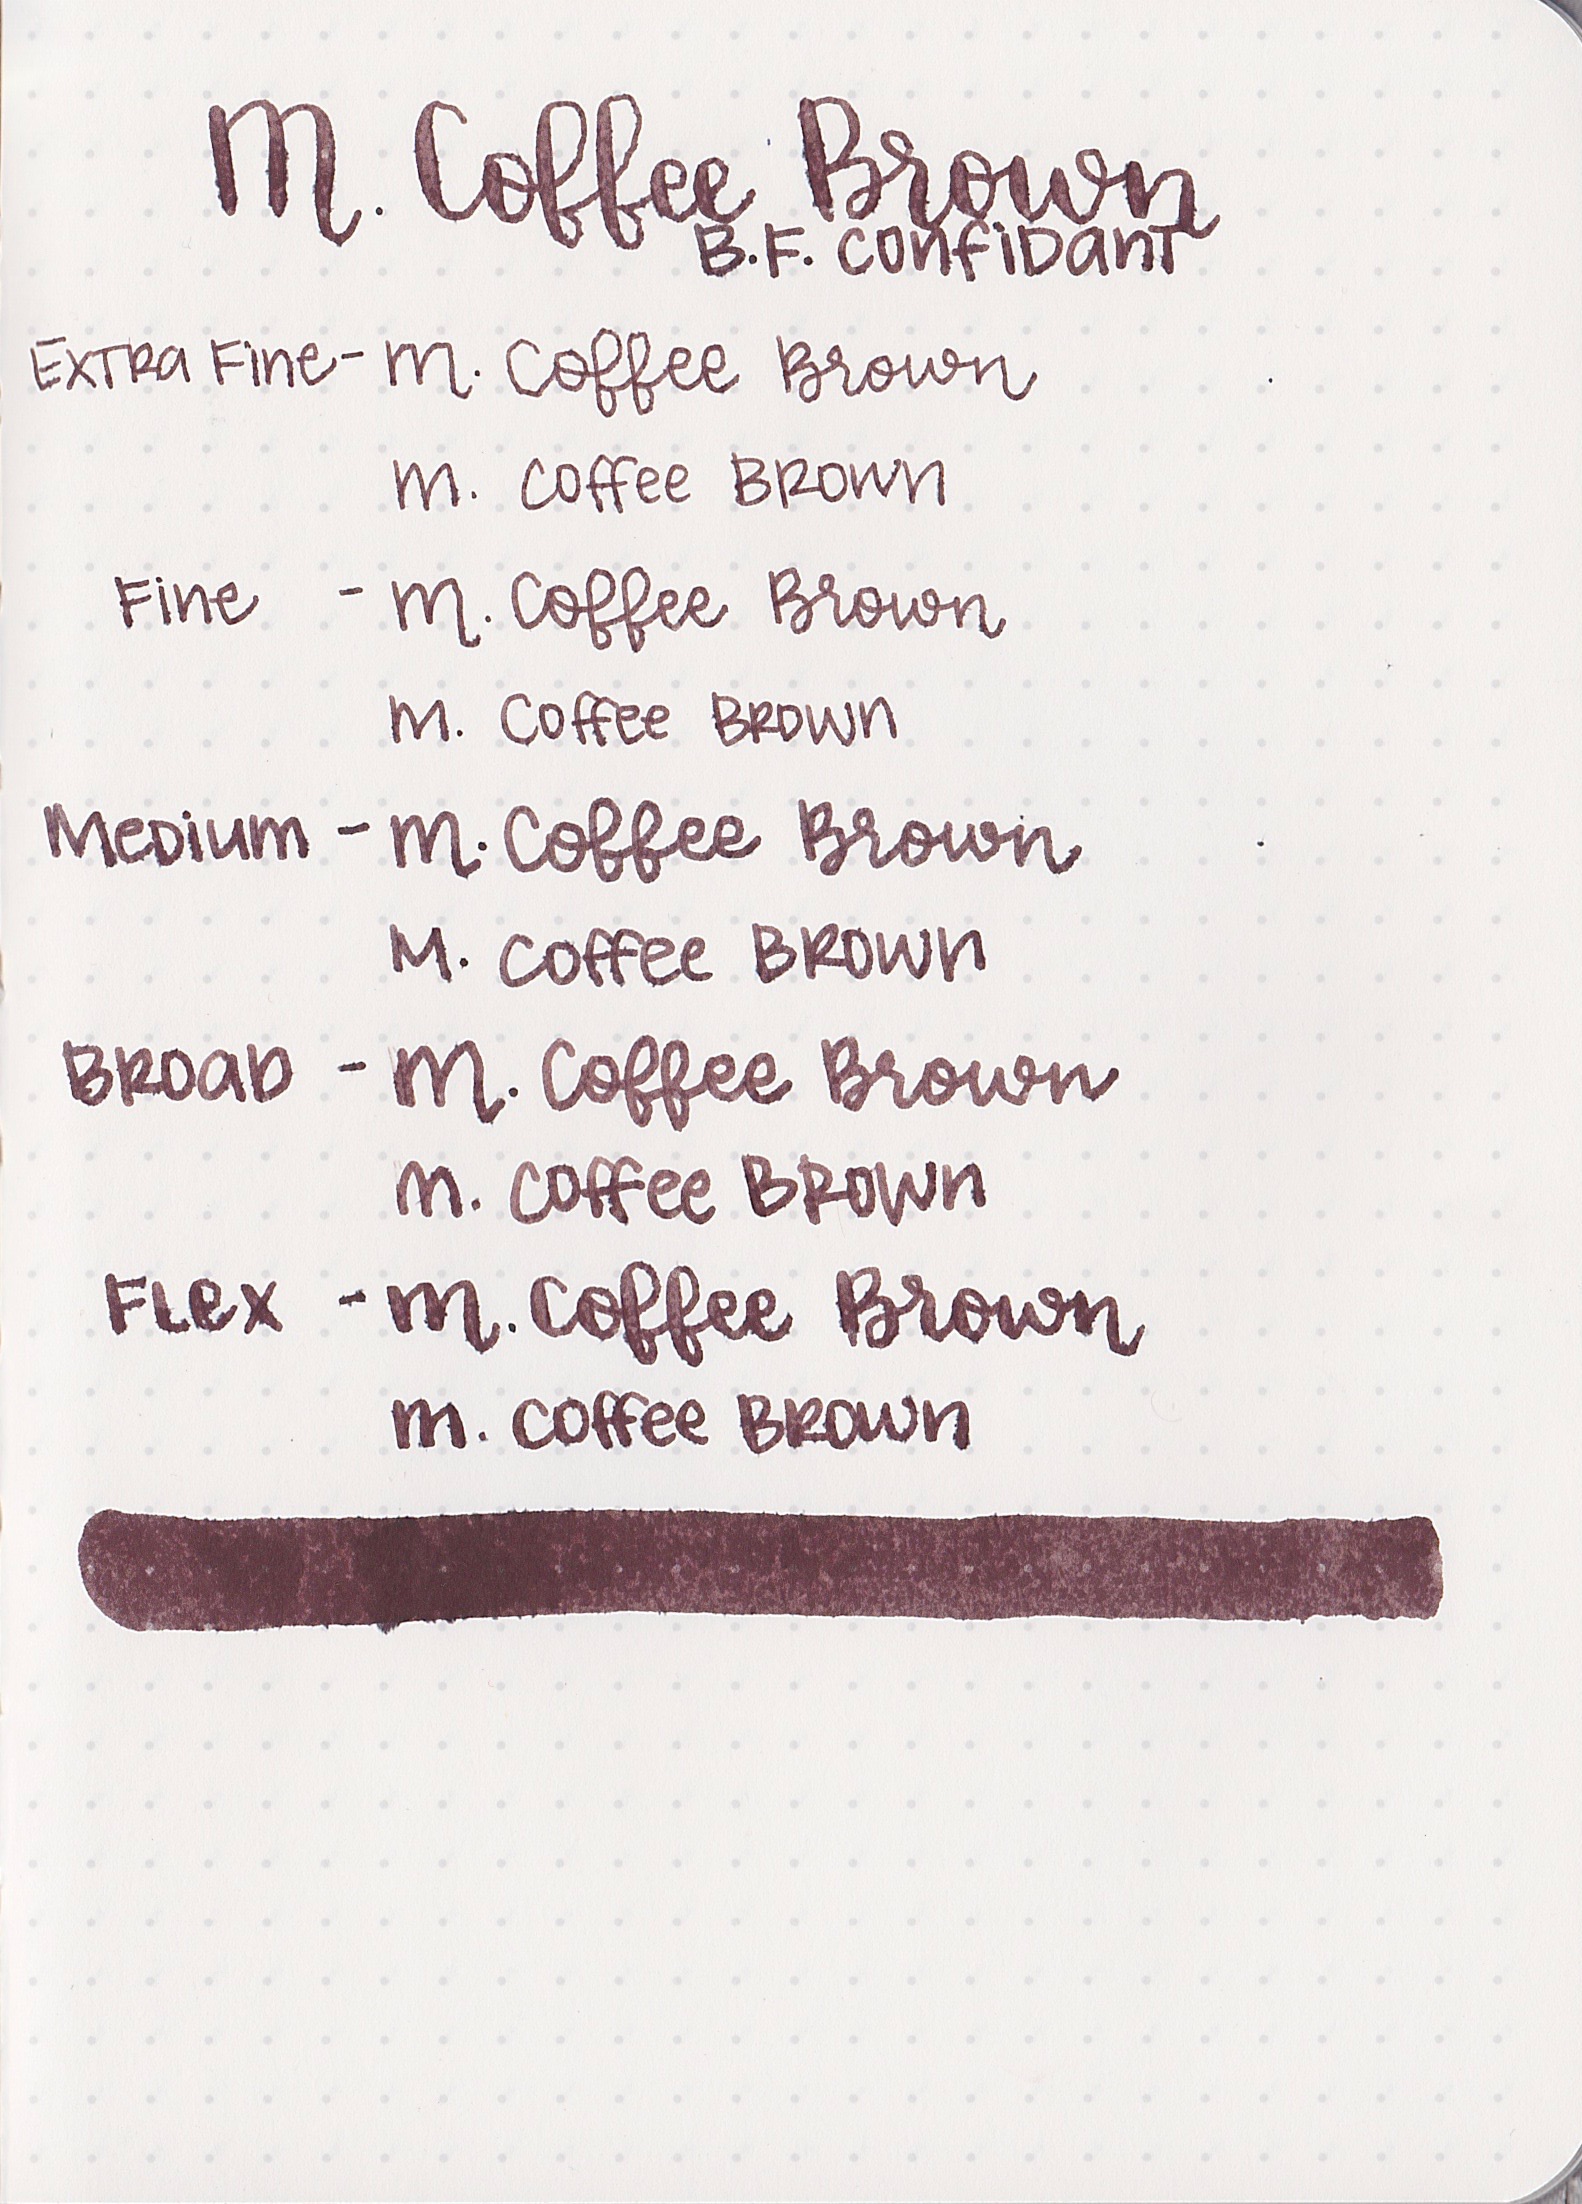 M. Coffee Brown
B.F. Confidant
Extra Fine - M. Coffee Brown
M. Coffee Brown
Fine - M. Coffee Brown
M. Coffee Brown
Medium - M. Coffee Brown
M. Coffee Brown
Broad - M. Coffee Brown
M. Coffee Brown
Flex - M. Coffee Brown
M. Coffee Brown